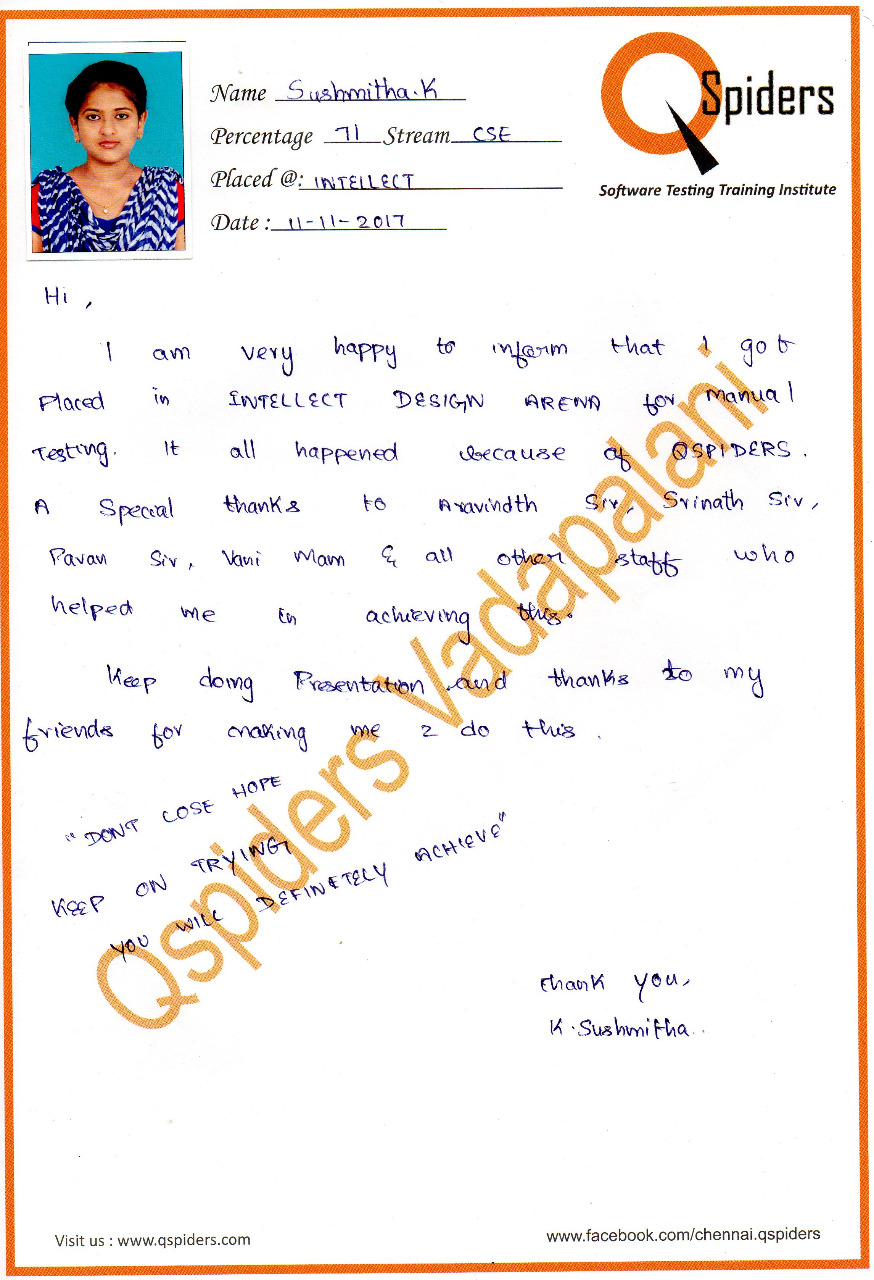 QSpiders
Software Testing Training Institute
Name Sushmitha.K
Percentage 71 Stream CSE
Placed @: INTELLECT
Date : 11-11-2017
Hi,
I am very happy to inform that I got
Placed in INTELLECT DESIGN ARENA for manual
Testing. It all happened because of QSPIDERS.
A Special thanks to Aravindth Sir, Srinath Sir,
Pavan Sir, Vani Mam & all other staff who
helped me in achieving this.
Keep doing Presentation and thanks to my
friends for making me 2 do this.
"DONT LOSE HOPE
KEEP ON TRYING
YOU WILL DEFINETELY ACHIEVE"
Thank you,
K.Sushmitha..
Qspiders Vadapalani
Visit us : www.qspiders.com
www.facebook.com/chennai.qspiders